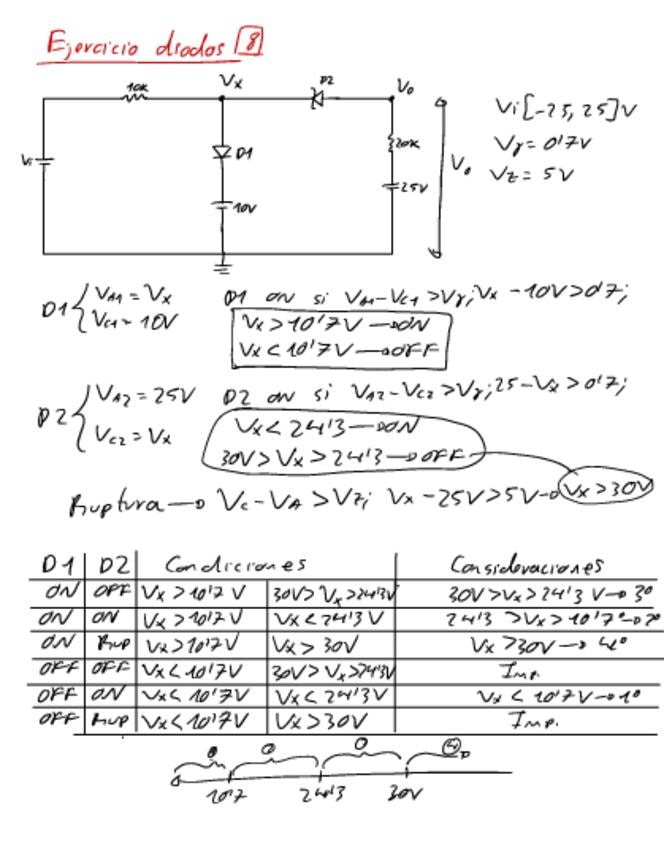 Ejercicio diodos 8
10K
Vx
D2
Vo
Vi
D1
10V
20K
25V
Vo
Vi[-25, 25]V
Vγ = 0'7V
Vz = 5V
D1 { VA1 = Vx
VC1 = 10V
D1 ON si VA1-VC1 > Vγ; Vx - 10V > 0'7;
Vx > 10'7V → ON
Vx < 10'7V → OFF
D2 { VA2 = 25V
VC2 = Vx
D2 ON si VA2-VC2 > Vγ; 25-Vx > 0'7;
Vx < 24'3 → ON
30V > Vx > 24'3 → OFF
Ruptura → Vc - VA > Vz; Vx - 25V > 5V → Vx > 30V
D1 D2 Condiciones Consideraciones
ON OFF Vx > 10'7V 30V > Vx > 24'3V 30V > Vx > 24'3V → 3º
ON ON Vx > 10'7V Vx < 24'3V 24'3 > Vx > 10'7 → 2º
ON Rup Vx > 10'7V Vx > 30V Vx > 30V → 4º
OFF OFF Vx < 10'7V 30V > Vx > 24'3V Imp.
OFF ON Vx < 10'7V Vx < 24'3V Vx < 10'7V → 1º
OFF Rup Vx < 10'7V Vx > 30V Imp.
4
10'7 24'3 30V